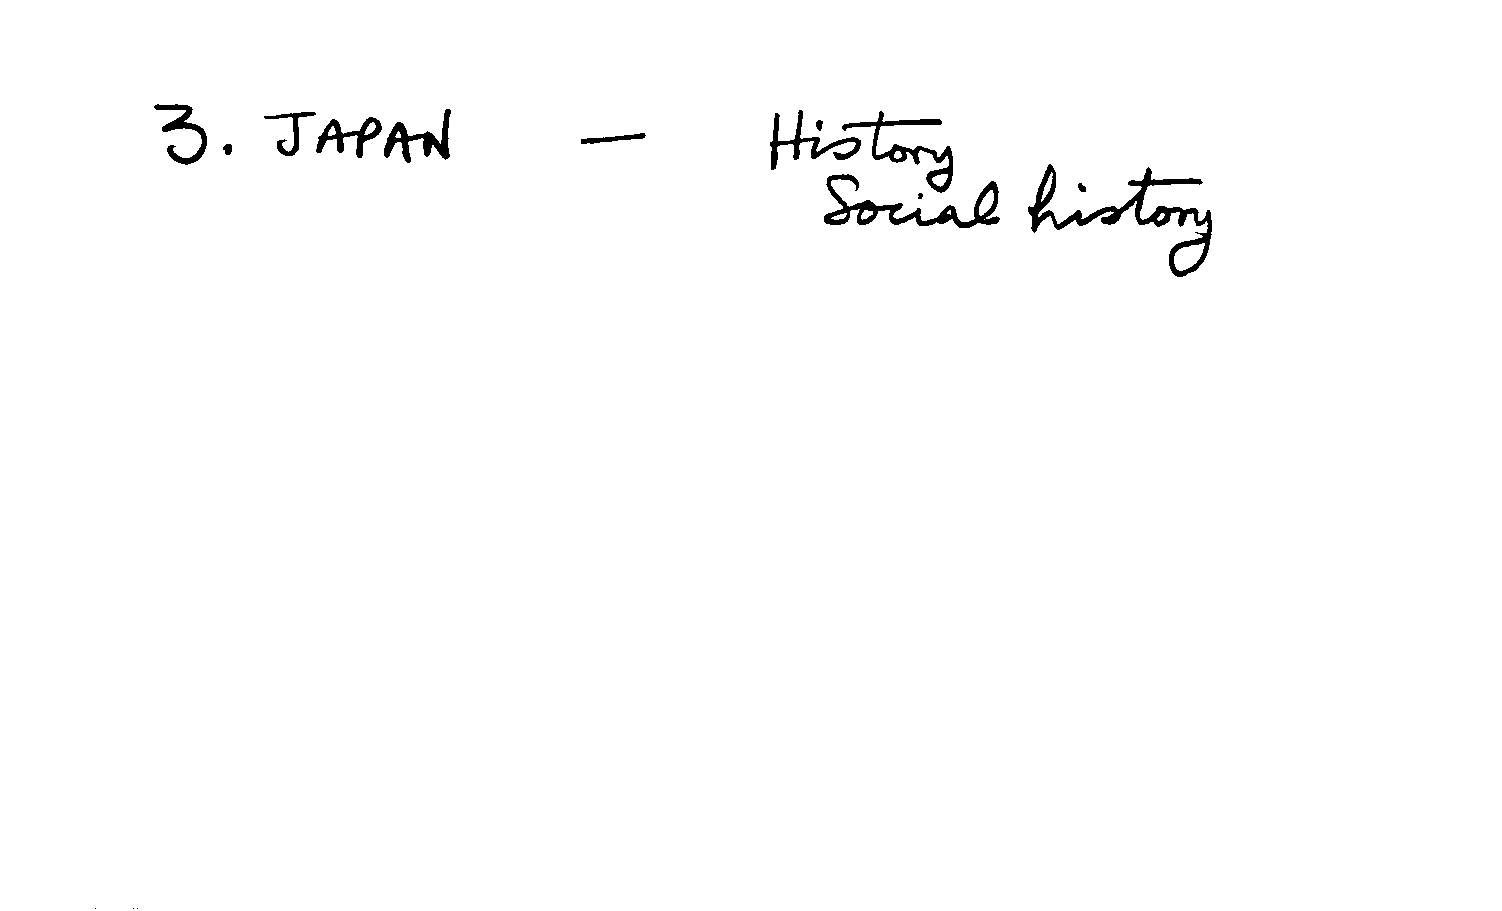 3. JAPAN — History
Social history